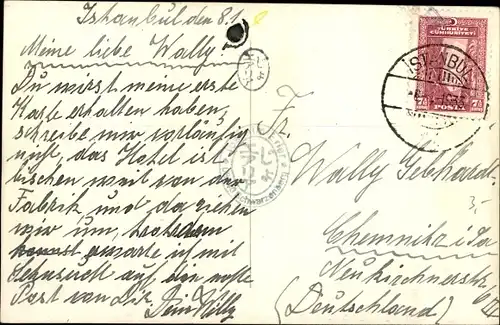 Istanbul den 8.1.
Meine liebe Wally!
Du wirst meine erste
Karte erhalten haben,
schreibe nur vorläufig
nicht, das Hotel ist
bischen weit von der
Fabrik und da ziehen
wir um, trotzdem
erwarte ich mit
Sehnsucht auf die nette
Post von Dir. Dein Willy
TÜRKİYE
CUMHURİYETİ
7½ 7½
POSTA
İSTANBUL
Fr.
Wally Gebhardt
Chemnitz i. Sa
Neukirchnerstr.
(Deutschland)
3,-
Schwarzenberg